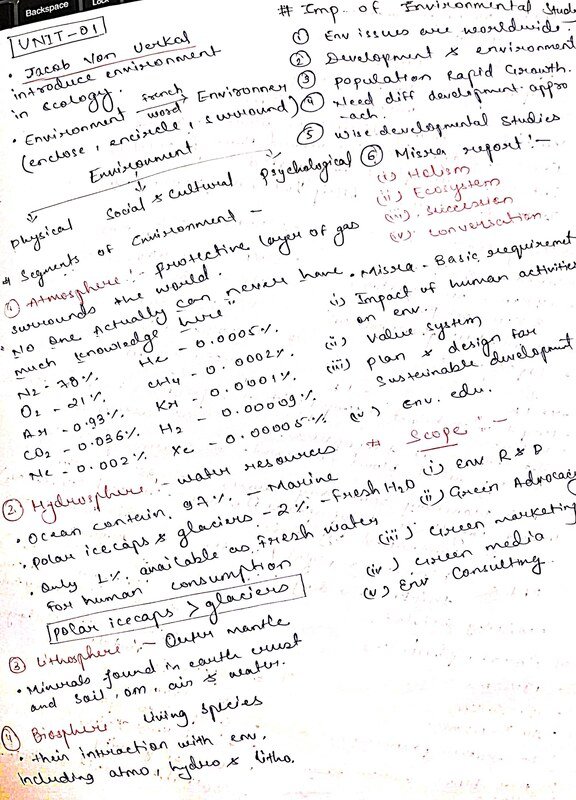 Backspace
UNIT-01
• Jacob Von Uerkal
introduce environment
in ecology.
• Environment french word Environner
(enclose, encircle, surround)
Environment
Physical Social & Cultural Psychological
# Segments of Environment -
① Atmosphere :- protective layer of gas
surrounds the world.
" No one Actually can never have
much knowledge here"
N2 - 78%. He - 0.0005%
O2 - 21% CH4 - 0.0002%
Ar - 0.93% Kr - 0.0001%
CO2 - 0.036% H2 - 0.00009%
Ne - 0.002% Xe - 0.00005%
② Hydrosphere :- water resources
• Ocean contain 97% - Marine
• Polar icecaps & glaciers - 2% - fresh H2O
• Only 1% available as fresh water
for human consumption
Polar icecaps > glaciers
③ Lithosphere :- Outer mantle
• Minerals found in earth crust
and soil, om, air & water.
④ Biosphere - living species
• their interaction with env.
Including atmo, hydro & litho.
# Imp. of Environmental Stud
① Env issues are worldwide.
② Development & environment
③ Population Rapid Growth.
④ Need diff development appro
-ach.
⑤ Wise developmental studies
⑥ Misra report :-
(i) Holism
(ii) Ecosystem
(iii) succession
(iv) conversation.
• Misra - Basic requiremet
i) Impact of human activities
on env.
(ii) Value system
(iii) plan & design for
Sustainable development
(iv) env. edu.
# Scope :-
(i) env R & D
(ii) Green Advocacy
(iii) Green marketing
(iv) Green media
(v) Env Consulting